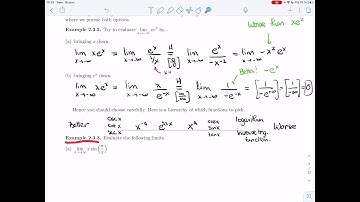 where we pursue both options.
Worse than xeˣ
Example 2.3.2. Try to evaluate lim xeˣ by...
x→-∞
(a) bringing x down.
lim xeˣ = lim eˣ/(1/x) = H [0/0] lim eˣ/(-x⁻²) = lim -x²eˣ
x→-∞ x→-∞ x→-∞ x→-∞
Better! -eˣ
(b) bringing eˣ down.
lim xeˣ = lim x/e⁻ˣ = H lim 1/(-e⁻ˣ) = = = 0
x→-∞ x→-∞ x→-∞
Hence you should choose carefully. Here is a hierarchy of functions to pick
Better csc x cot x sec x x⁻ⁿ xⁿ cos x sin x tan x logarithm inverse trig. function. Worse
Example 2.3.3. Evaluate the following limits.
(a) lim x sin